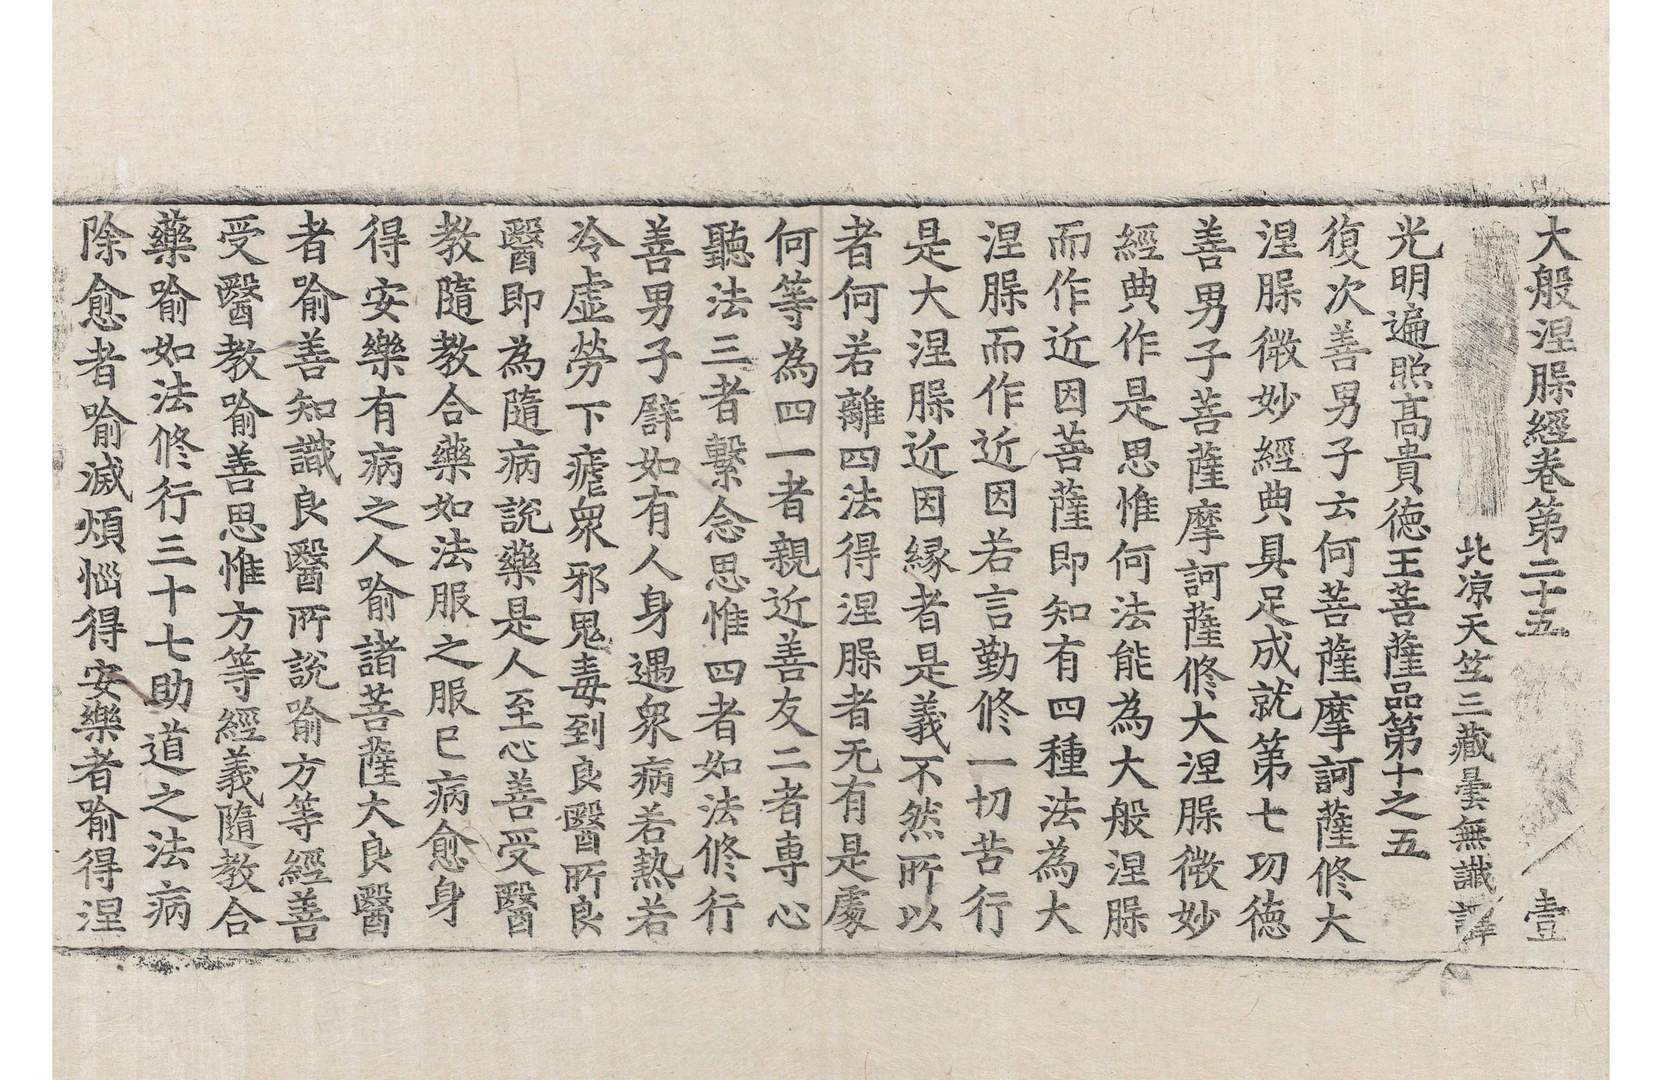 大般涅槃經卷第二十五 壹
北涼天竺三藏曇無讖譯
光明遍照髙貴德王菩薩品第十之五
復次善男子云何菩薩摩訶薩修大
涅槃微妙經典具足成就第七功德
善男子菩薩摩訶薩修大涅槃微妙
經典作是思惟何法能為大般涅槃
而作近因菩薩即知有四種法為大
涅槃而作近因若言勤修一切苦行
是大涅槃近因緣者是義不然所以
者何若離四法得涅槃者无有是處
何等為四一者親近善友二者專心
聽法三者繫念思惟四者如法修行
善男子譬如有人身遇衆病若熱若
冷虛勞下瘧衆邪鬼毒到良醫所良
醫即為隨病說藥是人至心善受醫
教隨教合藥如法服之服已病愈身
得安樂有病之人喻諸菩薩大良醫
者喻善知識良醫所說喻方等經善
受醫教喻善思惟方等經義隨教合
藥喻如法修行三十七助道之法病
除愈者喻滅煩惱得安樂者喻得涅